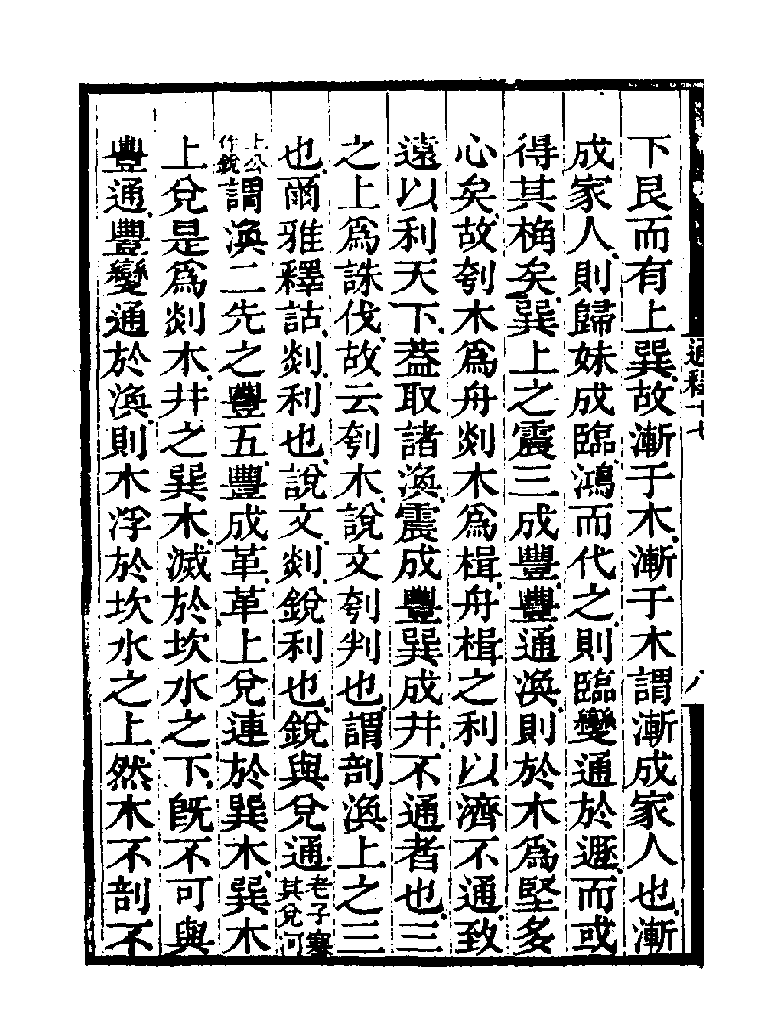 通釋十七
八
下艮而有上巽故漸于木漸于木謂漸成家人也漸
成家人則歸妹成臨鴻而代之則臨變通於遯而或
得其桷矣巽上之震三成豐豐通渙則於木爲堅多
心矣故刳木爲舟剡木爲楫舟楫之利以濟不通致
遠以利天下葢取諸渙震成豐巽成井不通者也三
之上爲誅伐故云刳木說文刳判也謂剖渙上之三
也爾雅釋詁剡利也說文剡銳利也銳與兌通老子塞其兌河
上公作銳謂渙二先之豐五豐成革革上兌連於巽木巽木
上兌是爲剡木井之巽木滅於坎水之下旣不可與
豐通豐變通於渙則木浮於坎水之上然木不剖不